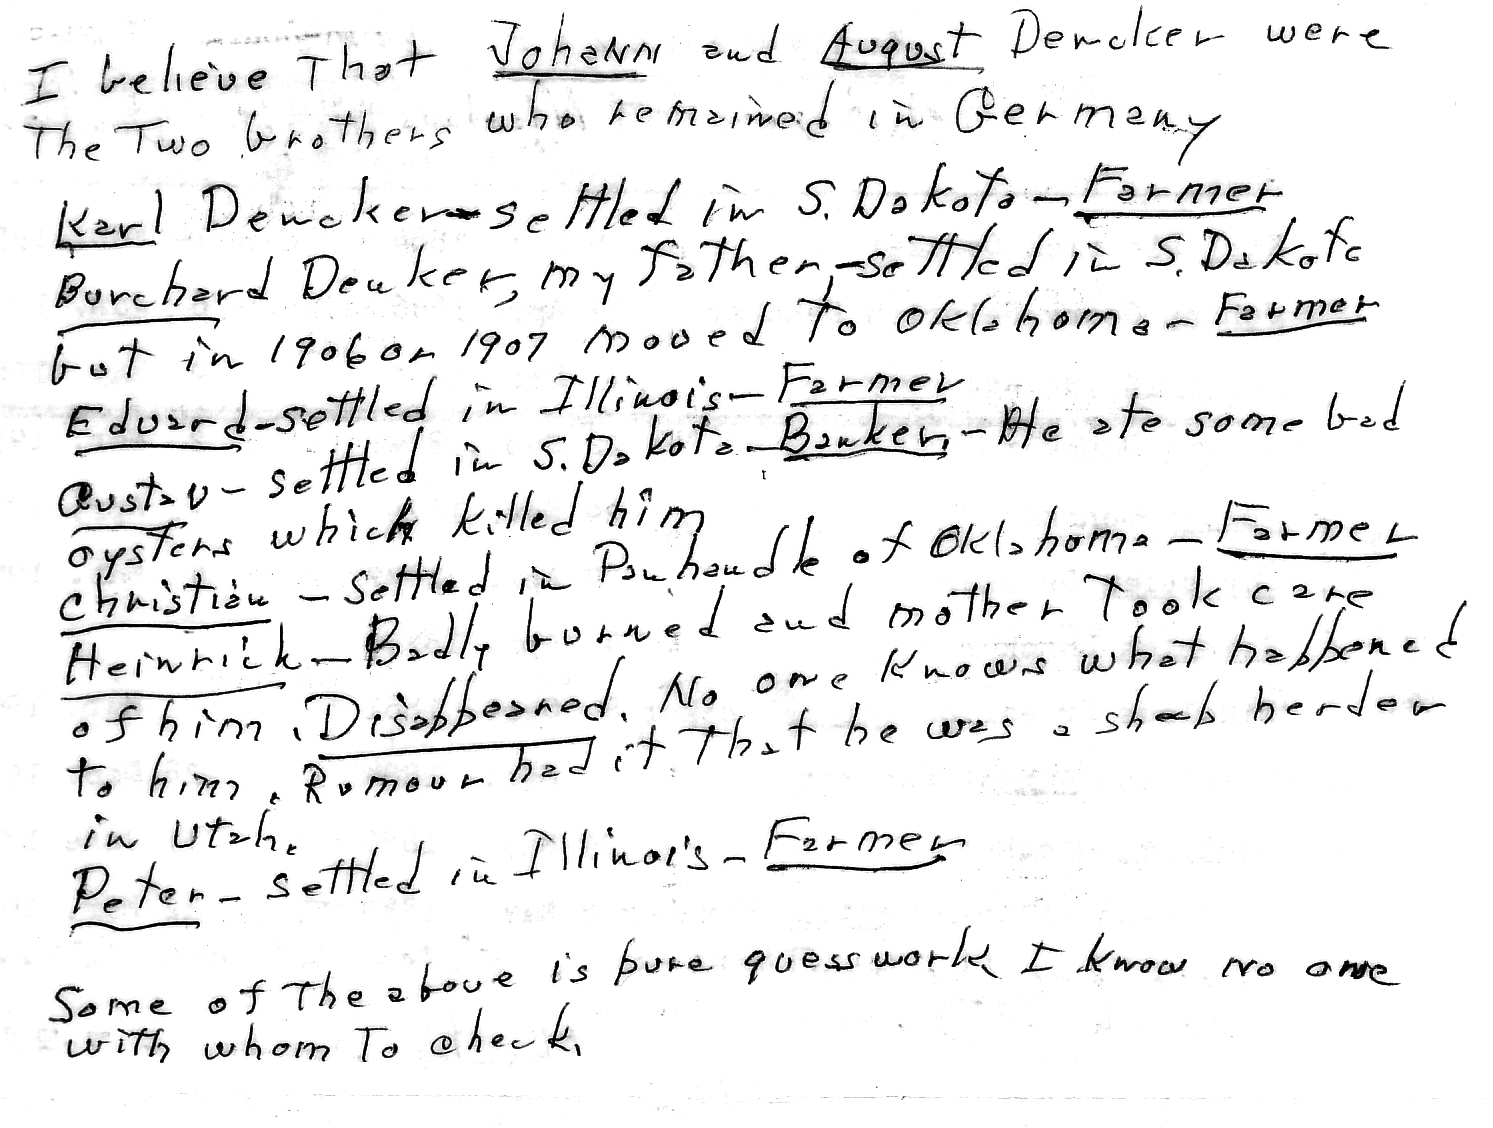 I believe That Johann and August Dencker were
The Two brothers who remained in Germany
Karl Dencker - settled in S. Dakota - Farmer
Burchard Deuker, my father, - settled in S. Dakota
but in 1906 or 1907 moved To Oklahoma - Farmer
Eduard - settled in Illinois - Farmer
Gustav - settled in S. Dakota - Banker, - He ate some bad
oysters which killed him
Christian - settled in Panhandle of Oklahoma - Farmer
Heinrich - Badly burned and mother Took care
of him. Disappeared. No one knows what happened
to him. Rumour had it That he was a sheep herder
in Utah.
Peter - settled in Illinois - Farmer
Some of The above is pure guess work. I know no one
with whom To check.